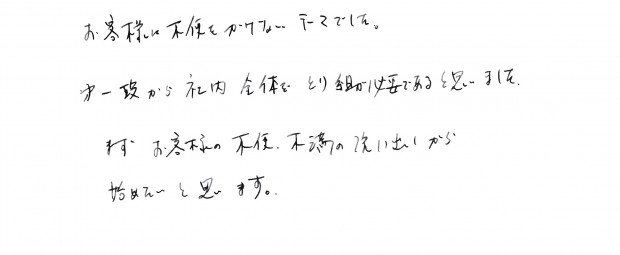 お客様に不便をかけないテーマでした。
から社内全体をとり組が必要であると思いました。
まず お客様の不便、不満の洗い出しから
始めたいと思います。